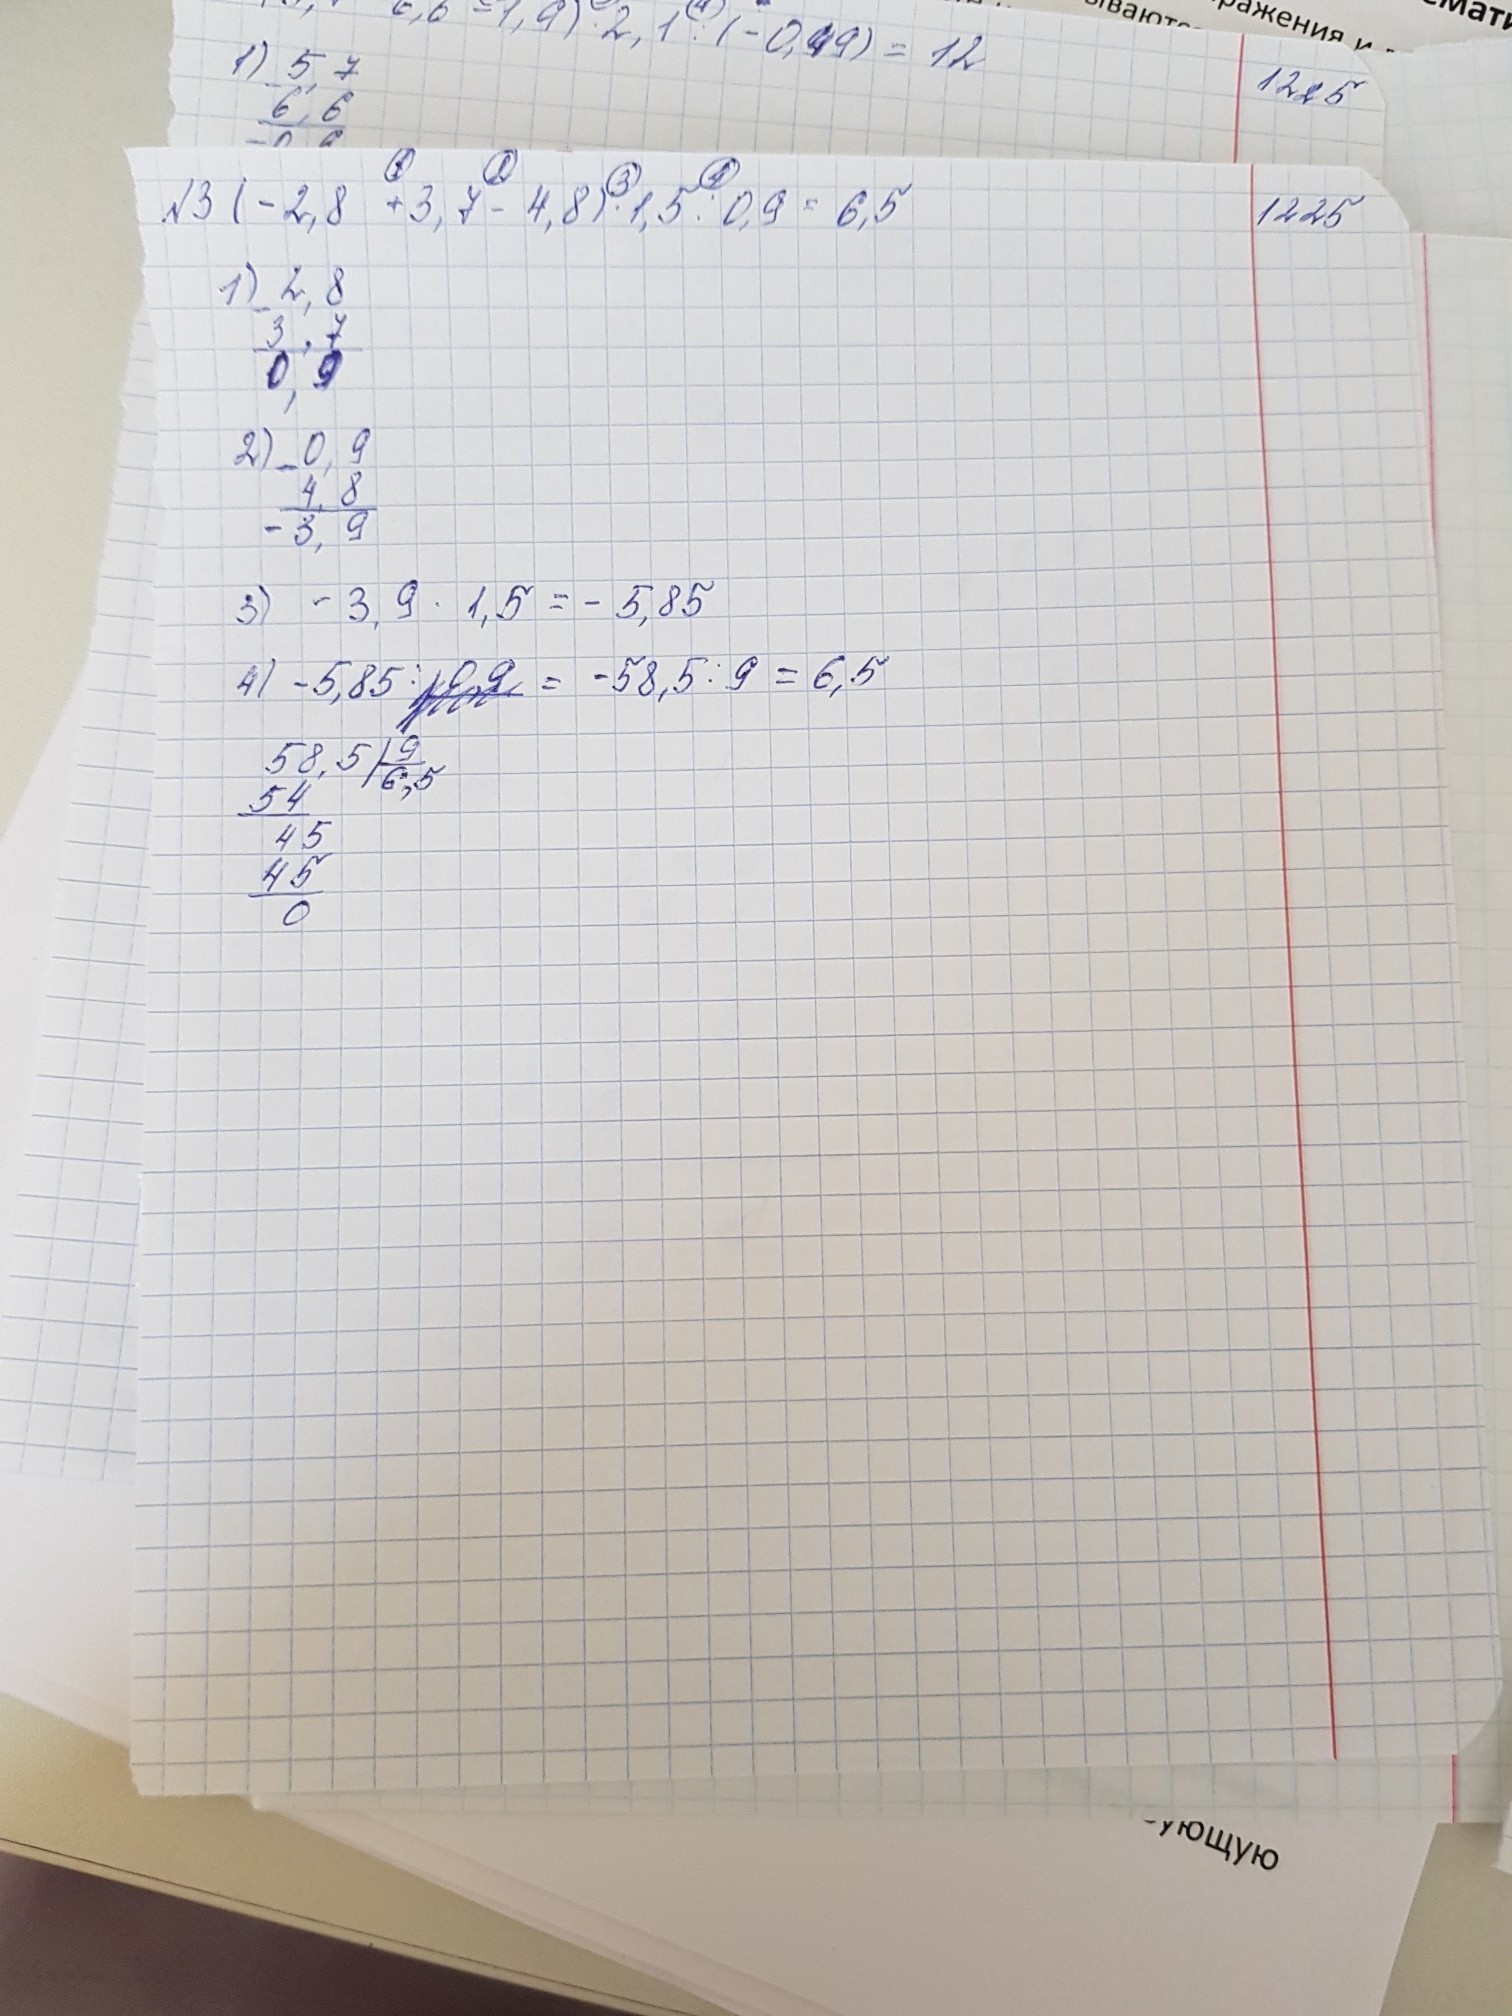 емати
ражения и
ываютс
6,6 - 1,9) · 2,1 : (-0,49) = 12
1225
1) 5,7
6,6
-0,9
№3 (-2,8 + 3,7 - 4,8) · 1,5 : 0,9 = 6,5
1225
1) _ 2,8
3,7
0,9
2) _ 0,9
4,8
- 3,9
3) - 3,9 · 1,5 = - 5,85
4) -5,85 : 0,9 = -58,5 : 9 = 6,5
58,5 | 9
6,5
54
45
45
0
ующую